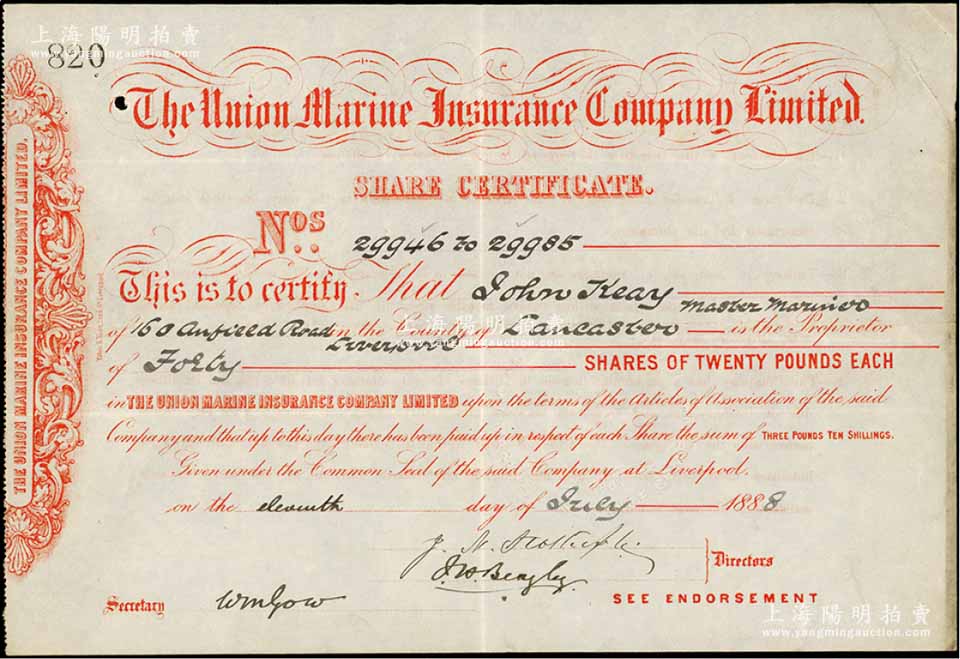 上海陽明拍賣
www.yangmingauction.com
820
The Union Marine Insurance Company Limited.
SHARE CERTIFICATE.
Nos. 29946 to 29985
This is to certify That John Keay Master Mariner
of 160 Anfield Road Liverpool in the County of Lancaster is the Proprietor
of Forty SHARES OF TWENTY POUNDS EACH
in THE UNION MARINE INSURANCE COMPANY LIMITED upon the terms of the Articles of Association of the said
Company and that up to this day there has been paid up in respect of each Share the sum of THREE POUNDS TEN SHILLINGS.
Given under the Common Seal of the said Company at Liverpool.
on the eleventh day of July 1888
Directors
Secretary Wm Gow
SEE ENDORSEMENT
THE UNION MARINE INSURANCE COMPANY LIMITED.
上海陽明拍賣
www.yangmingauction.com
上海陽明拍賣
www.yangmingauction.com